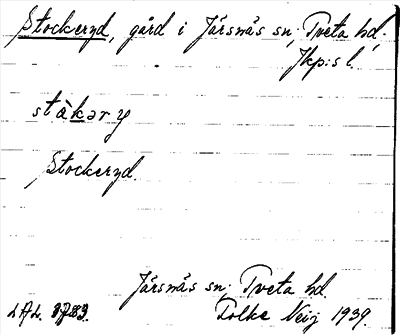 Stockeryd, gård i Järsnäs sn, Tveta hd,
Jkp:s l.
ståkəry
Stockeryd.
Järsnäs sn, Tveta hd.
LAL. 3783. Folke Neij 1939.